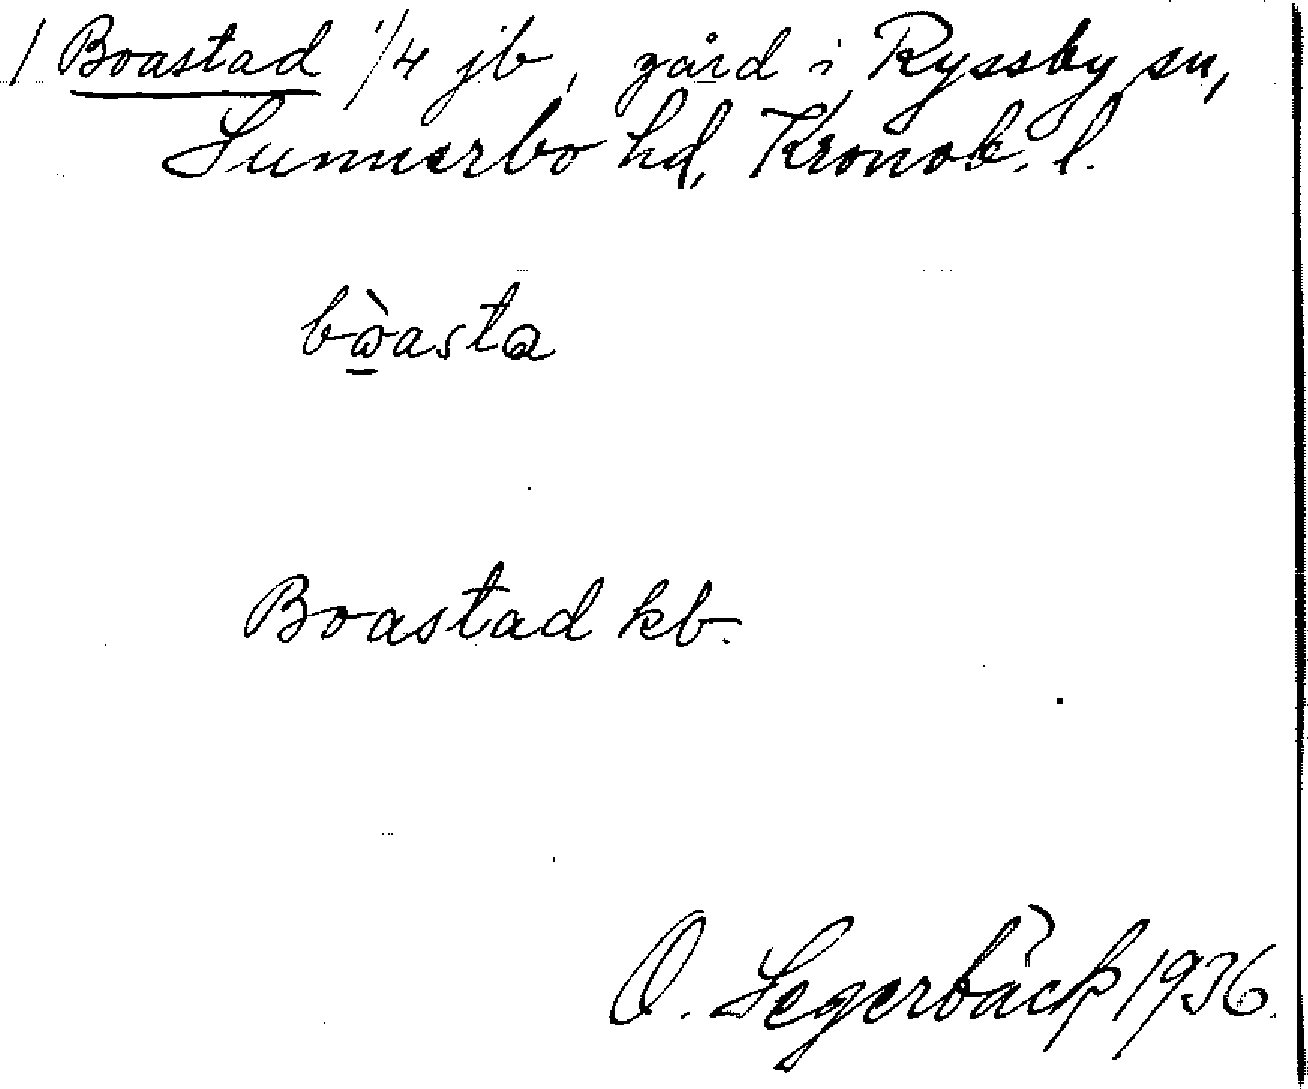 / Boastad 1/4 jb, gård i Ryssby sn,
Sunnerbo hd, Kronob. l.
bὼ̲asta
Boastad kb.
O. Segerbäck 1936.